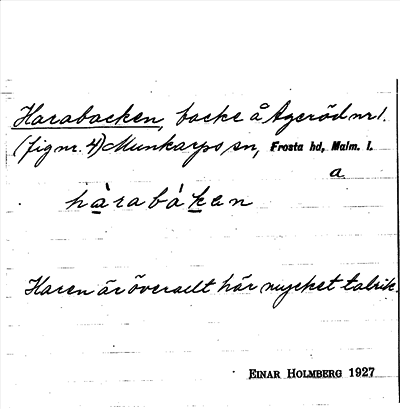 Harabacken, backe å Ageröd nr 1.
(fig nr. 4) Munkarps sn, Frosta hd, Malm. l.
a
hàrabáken
Haren är överallt här mycket talrik.
EINAR HOLMBERG 1927